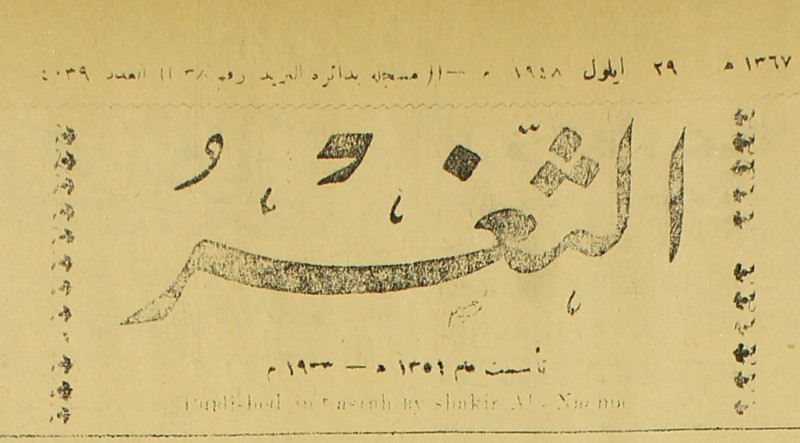 ١٣٦٧ ه ٢٩ ايلول ١٩٤٨ م — (( مسجله بدائرة البريد رقم ٣٨ )) العدد ٤٠٣٩
الثَّغْرُ
تأسست عام ١٣٥١ ه — ١٩٣٣ م
Published in Basrah by Shakir Al - Naemoc